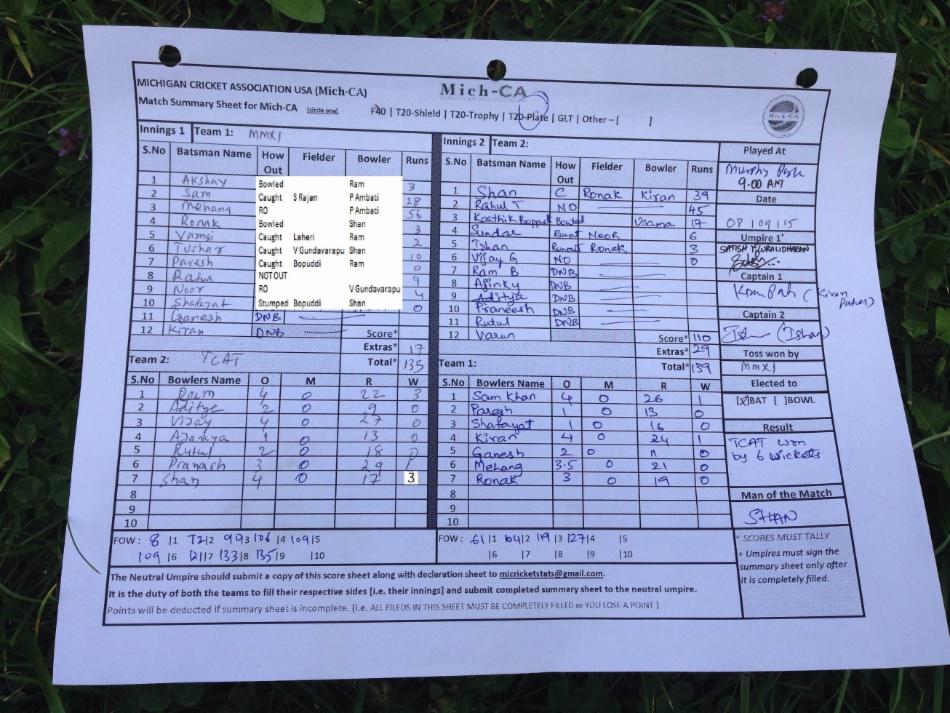 MICHIGAN CRICKET ASSOCIATION USA (Mich-CA)
Mich-CA
Match Summary Sheet for Mich-CA [circle one] F40 | T20-Shield | T20-Trophy | T20-Plate | GLT | Other – [ ]
Innings 1 Team 1: MMXI
S.No Batsman Name How Out Fielder Bowler Runs
1 Akshay Bowled Ram 3
2 Sam Caught S Rajan P Ambati 28
3 Mehang RO P Ambati 56
4 Ronak Bowled Shan 3
5 Vamsi Caught Laheri Ram 2
6 Tushar Caught V Gundavarapu Shan 10
7 Paresh Caught Bopuddi Ram 0
8 NOT OUT 9
9 Noor RO V Gundavarapu 4
10 Shafayat Stumped Bopuddi Shan 0
11 Ganesh DNB
12 Kiran DNB
Score*
Extras* 17
Total* 135
Team 2: TCAT
S.No Bowlers Name O M R W
1 Ram 4 0 22 3
2 Aditya 2 0 9 0
3 Vijay 4 0 27 0
4 Ajinkya 1 0 13 0
5 Rutul 2 0 18 0
6 Pranash 3 0 29
7 Shan 4 0 17 3
8
9
10
FOW: 8 |1 72|2 99|3 106 |4 109|5
109 |6 |7 133|8 135|9 |10
Innings 2 Team 2:
S.No Batsman Name How Out Fielder Bowler Runs
1 Shan C Ronak Kiran 39
2 Rahul T NO 45
3 Kosthik Bowled Usama 17
4 Sundar Runout Noor 6
5 Ishan Runout Ronak 3
6 Vijay G NO 0
7 Ram B DNB
8 Ajinky DNB
9 Aditya DNB
10 Praneesh DNB
11 Rutul DNB
12 Varun
Score* 110
Extras* 29
Total* 139
Team 1:
S.No Bowlers Name O M R W
1 Sam Khan 4 0 26 1
2 Paresh 1 0 13 0
3 Shafayat 1 0 16 0
4 Kiran 4 0 24 1
5 Ganesh 2 0 11 0
6 Mehang 3.5 0 21 0
7 Ronak 3 0 19 0
8
9
10
FOW: 61|1 104|2 119 |3 127|4 |5
|6 |7 |8 |9 |10
Played At
Murphy Park
9:00 AM
Date
08/09/15
Umpire 1'
SATISH MURALIDHARAN
Captain 1
(Kiran Patel)
Captain 2
(Ishan)
Toss won by
MMXI
Elected to
[X]BAT [ ]BOWL
Result
TCAT won
by 6 wickets
Man of the Match
SHAN
* SCORES MUST TALLY
+ Umpires must sign the
summary sheet only after
it is completely filled.
The Neutral Umpire should submit a copy of this score sheet along with declaration sheet to micricketstats@gmail.com.
It is the duty of both the teams to fill their respective sides [i.e. their innings] and submit completed summary sheet to the neutral umpire.
Points will be deducted if summary sheet is incomplete. [i.e. ALL FILEDS IN THIS SHEET MUST BE COMPLETELY FILLED or YOU LOSE A POINT]